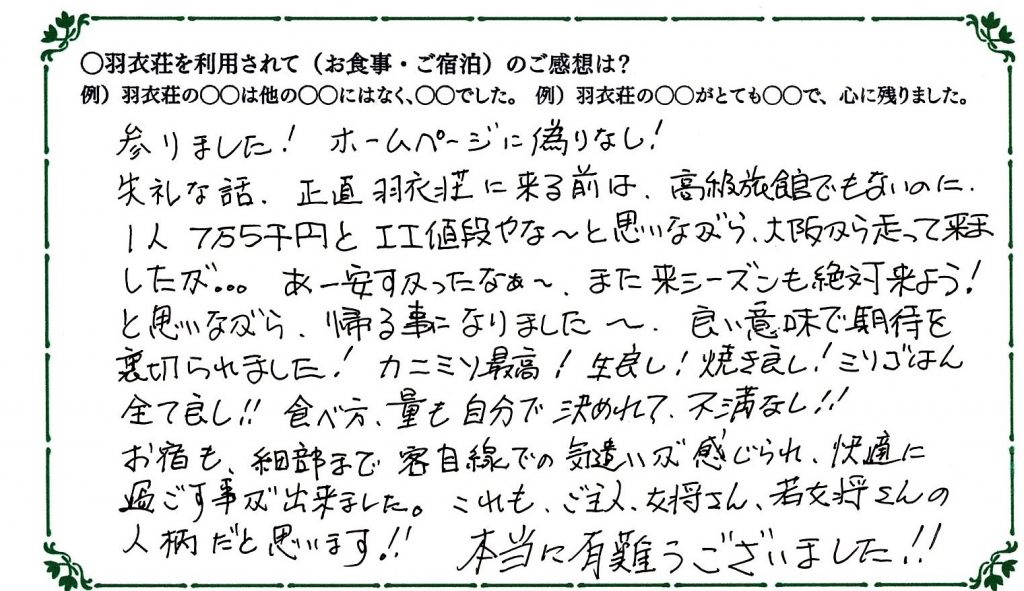 〇羽衣荘を利用されて（お食事・ご宿泊）のご感想は？
例）羽衣荘の〇〇は他の〇〇にはなく、〇〇でした。 例）羽衣荘の〇〇がとても〇〇で、心に残りました。
参りました！ ホームページに偽りなし！
失礼な話、正直羽衣荘に来る前は、高級旅館でもないのに、
1人 7万5千円とエエ値段やな〜と思いながら、大阪から走って来ま
したが... あー安すかったなぁ〜、また来シーズンも絶対来よう！
と思いながら、帰る事になりました〜、良い意味で期待を
裏切られました！ カニミソ最高！ 生良し！焼き良し！ミソごはん
全て良し!! 食べ方、量も自分で決めれて、不満なし!!
お宿も、細部まで客目線での気遣いが感じられ、快適に
過ごす事が出来ました。これも、ご主人、女将さん、若女将さんの
人柄だと思います!! 本当に有難うございました!!